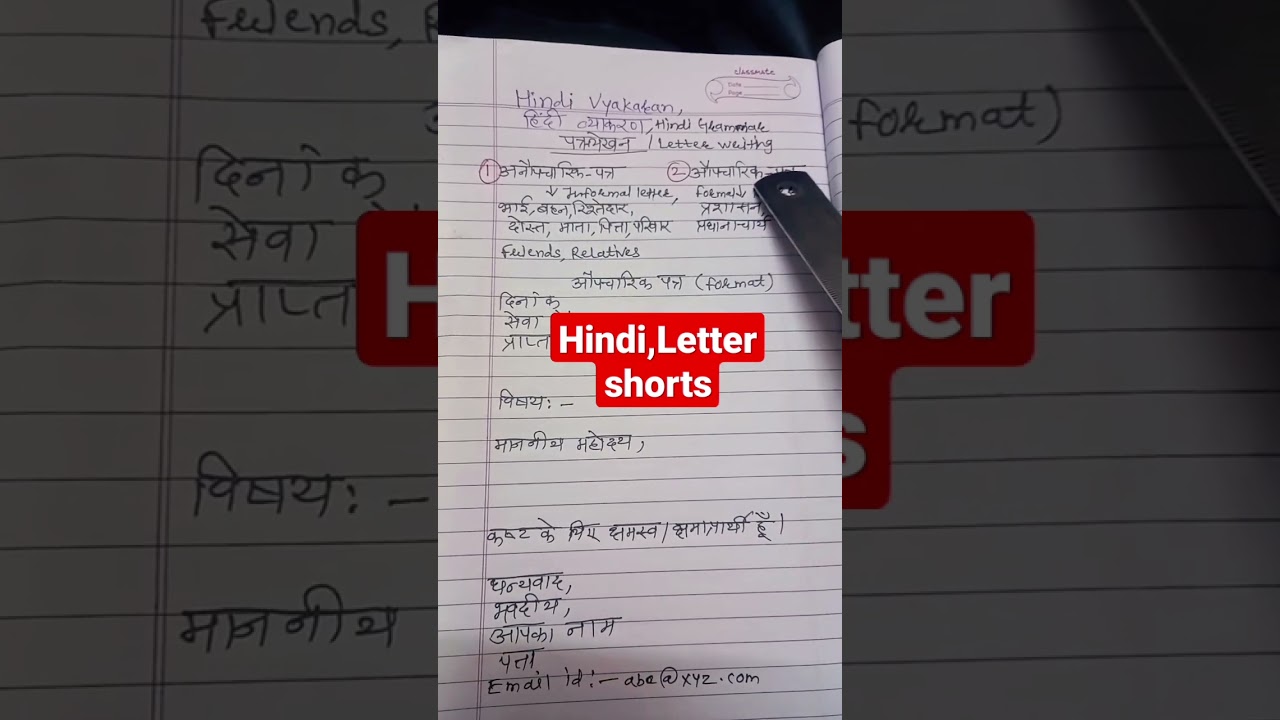 classmate
Date
Page
Hindi Vyakaran,
हिंदी व्याकरण, Hindi Grammar
पत्रलेखन / Letter writing
① अनौपचारिक-पत्र ② औपचारिक-पत्र
↓ Informal letter, formal ↓
भाई, बहन, रिश्तेदार, प्रशासन,
दोस्त, माता, पिता, परिवार प्रधानाचार्य
Friends, Relatives
औपचारिक पत्र (format)
दिनांक
सेवा
प्राप्त
Hindi,Letter
shorts
विषय: -
माननीय महोदय,
कष्ट के लिए क्षमस्व / क्षमाप्रार्थी हूँ।
धन्यवाद,
भवदीय,
आपका नाम
पता
Email id:- abc@xyz.com